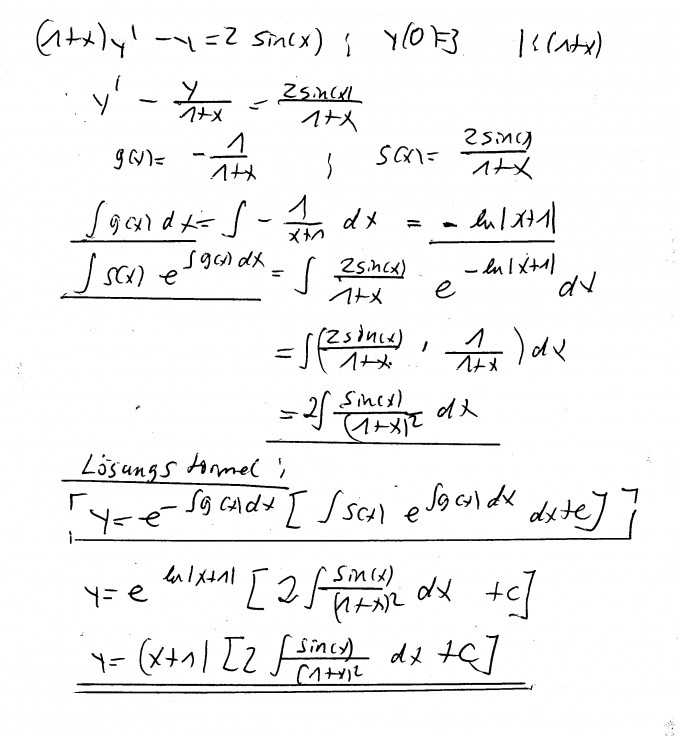 (1+x)y' - y = 2 sin(x) ; y(0)=3 |:(1+x)
y' - y/(1+x) = 2sin(x)/(1+x)
g(x) = - 1/(1+x) ; s(x) = 2sin(x)/(1+x)
∫g(x) dx = ∫ - 1/(x+1) dx = - ln|x+1|
∫ s(x) e^(∫g(x) dx) = ∫ 2sin(x)/(1+x) e^(-ln|x+1|) dx
= ∫(2sin(x)/(1+x) · 1/(1+x)) dx
= 2∫ sin(x)/(1+x)² dx
Lösungsformel ;
y = e^(-∫g(x)dx) [ ∫s(x) e^(∫g(x) dx) dx+c ]
y = e^(ln|x+1|) [ 2∫ sin(x)/(1+x)² dx +c ]
y = (x+1) [ 2 ∫ sin(x)/(1+x)² dx +C ]